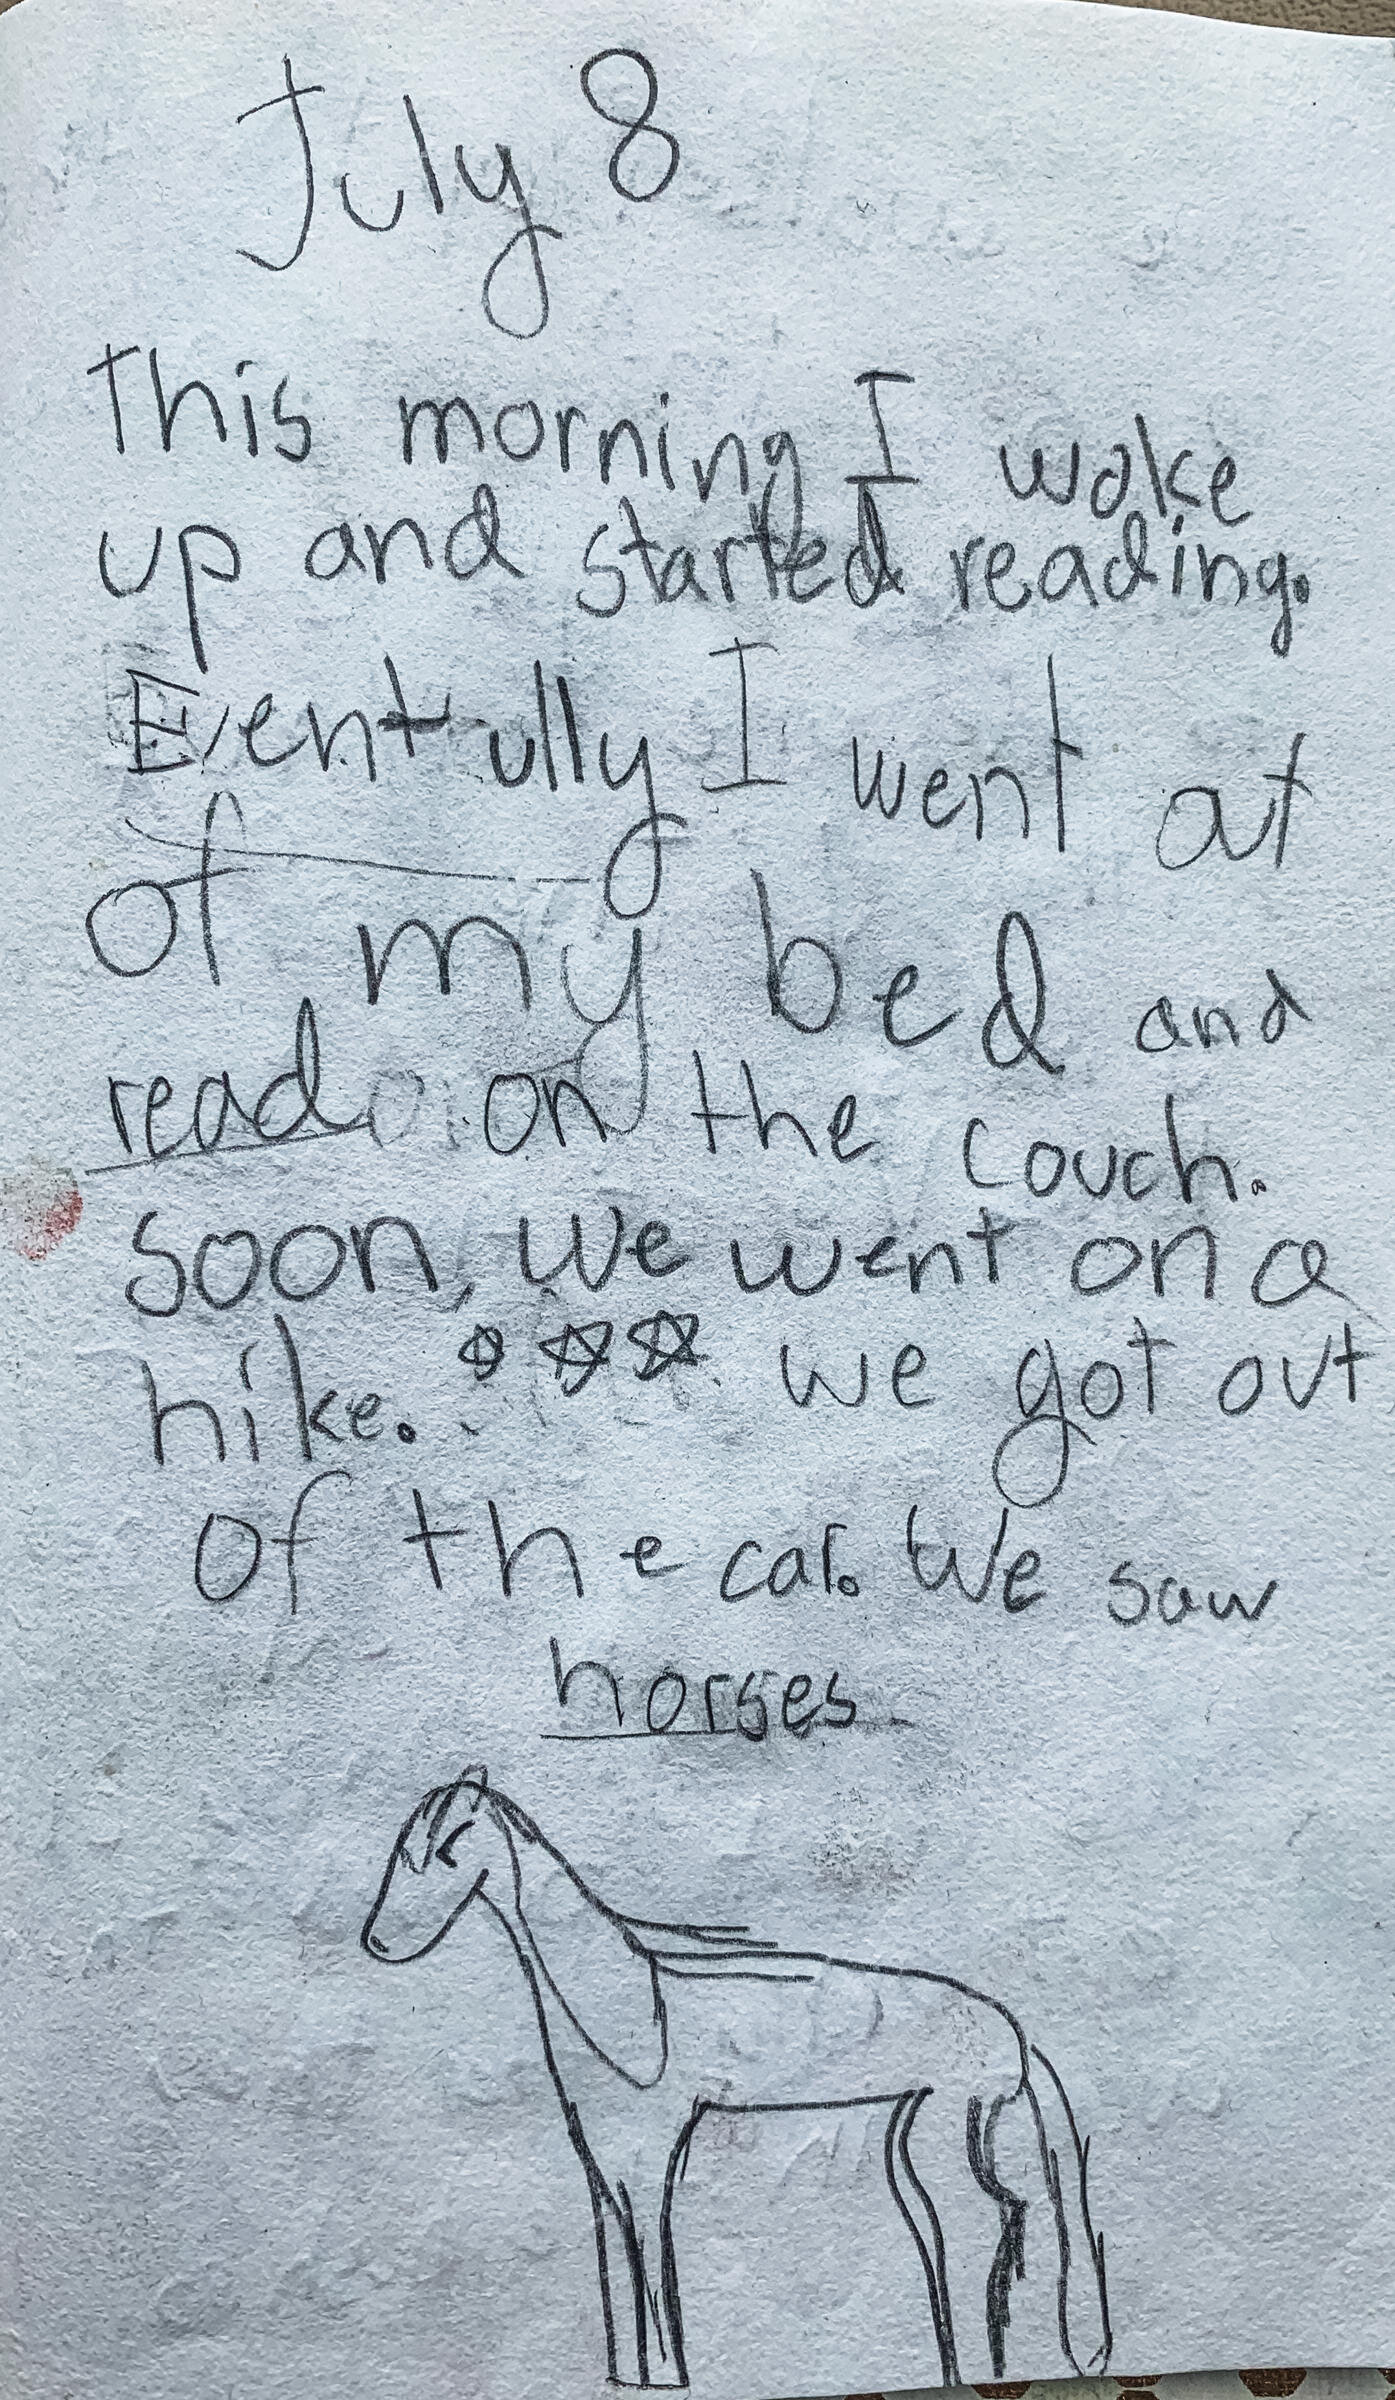 July 8
This morning I woke
up and started reading.
Eventully I went at
of my bed and
read on the couch.
soon, we went on a
hike. we got out
of the car. We saw
horses